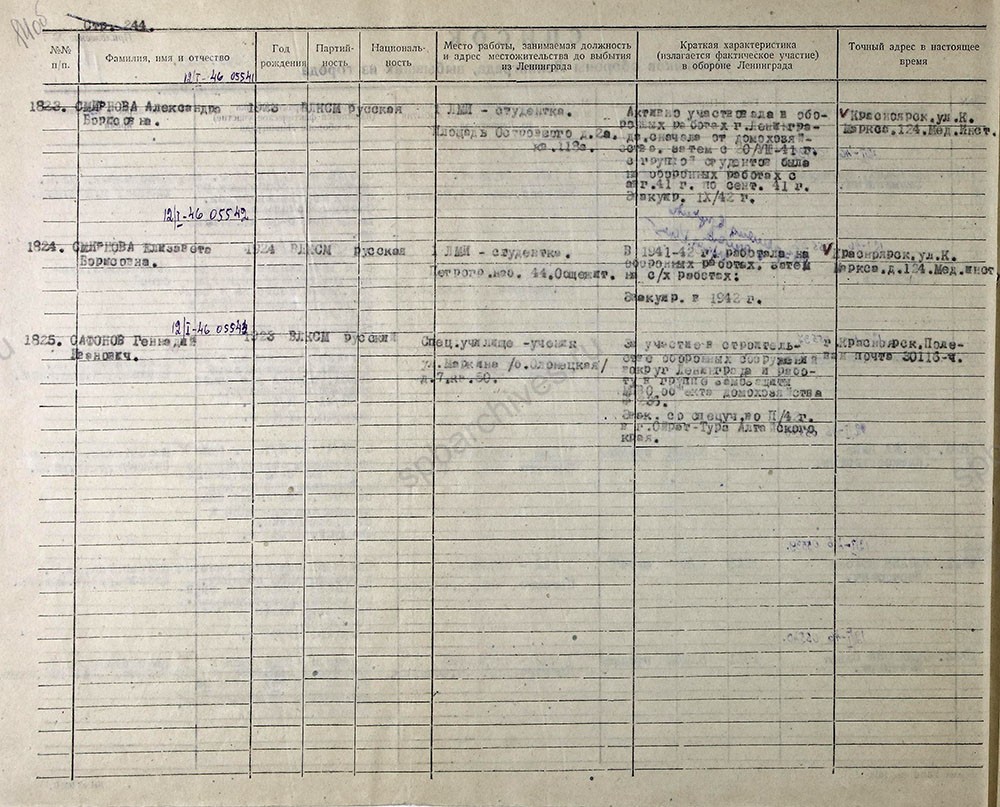 Стр. 244.
№№ п/п.
Фамилия, имя и отчество
Год рождения
Партий-
ность
Националь-
ность
Место работы, занимаемая должность
и адрес местожительства до выбытия
из Ленинграда
Краткая характеристика
(излагается фактическое участие)
в обороне Ленинграда
Точный адрес в настоящее
время
12/I-46 05541
1823. СМИРНОВА Александра
Борисовна.
1923 ВЛКСМ русская
I ЛМИ - студентка.
Площадь Островского д.2а.
кв.118а.
Активно участвовала в обо-
ронных работах г.Ленингра-
да,сначала от домохозяй-
ства, затем с 20/VIII-41 г.
с группой студентов была
на оборонных работах с
авг.41 г. по сент. 41 г.
Эвакуир. IX/42 г.
Красноярск,ул.К.
Маркса,124.Мед.Инст.
12/I-46 05542
1824. СМИРНОВА Елизавета
Борисовна.
1924 ВЛКСМ русская
I ЛМИ - студентка.
Петрогр.наб. 44.Общежит.
В 1941-42 г. работала на
оборонных работах, затем
на с/х работах;
Эвакуир. в 1942 г.
Красноярск,ул.К.
Маркса,д.124.Мед.инст.
12/I-46 05543
1825. САФОНОВ Геннадий
Иванович.
1923 ВЛКСМ русский
Спец.училище -ученик
ул.Маркина /б.Олонецкая/
д.7,кв.50.
За участие в строитель-
стве оборонных сооружений
вокруг Ленинграда и рабо-
ту в группе самозащиты
объекта домохозяйства
Эвак. со спецуч.во П/42 г.
в г.Ойрат-Тура Алтайского
края.
г.Красноярск,Поле-
вая почта 30116-ч.
spbarchives.ru